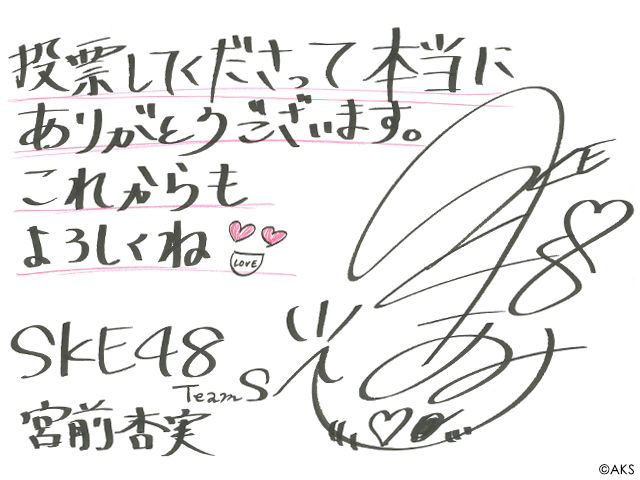 投票してくださって本当に
ありがとうございます。
これからも
よろしくね
LOVE
SKE48
Team S
宮前杏実
©AKS